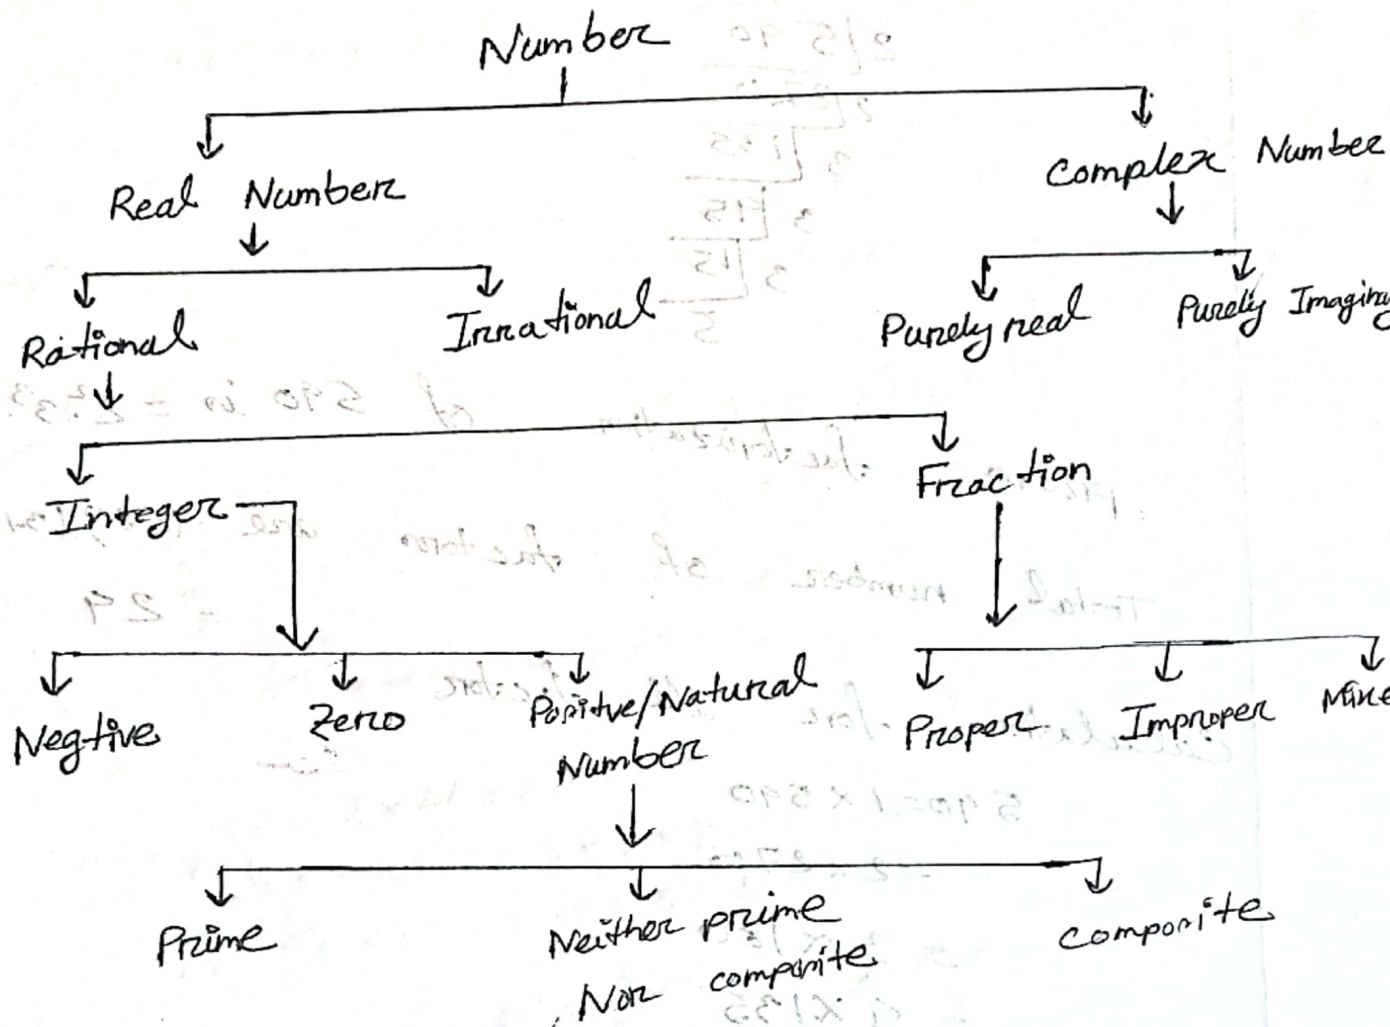 Number
Real Number
Complex Number
Rational
Irrational
Purely real
Purely Imaginy
Integer
Fraction
Negtive
Zero
Positve/Natural
Number
Proper
Improper
Mixe
Prime
Neither prime
Nor composite
Composite